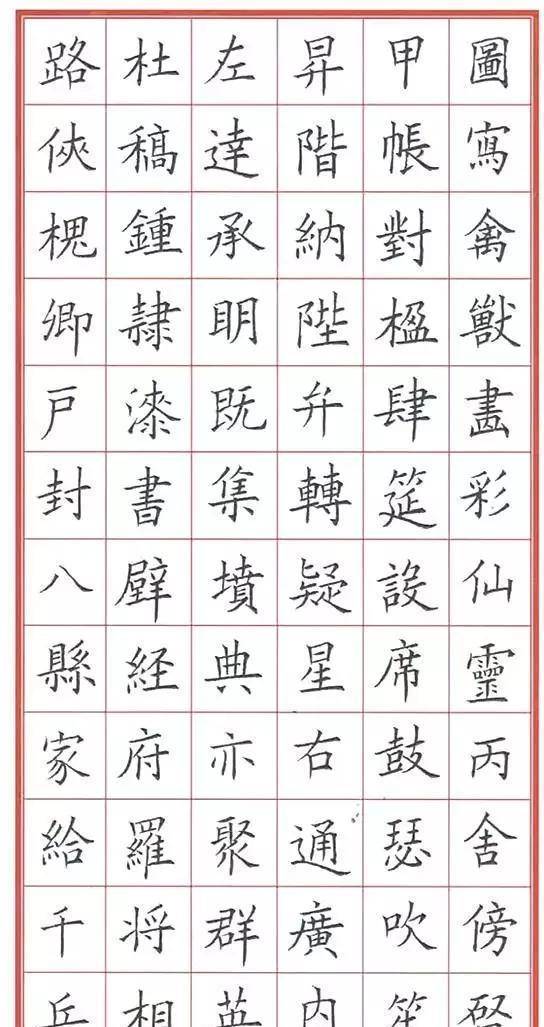 圖寫禽獸畫彩仙靈丙舍傍啓
甲帳對楹肆筵設席鼓瑟吹笙
昇階納陛弁轉疑星右通廣内
左達承明既集墳典亦聚群英
杜稿鍾隸漆書壁経府羅将相
路俠槐卿戶封八縣家給千兵